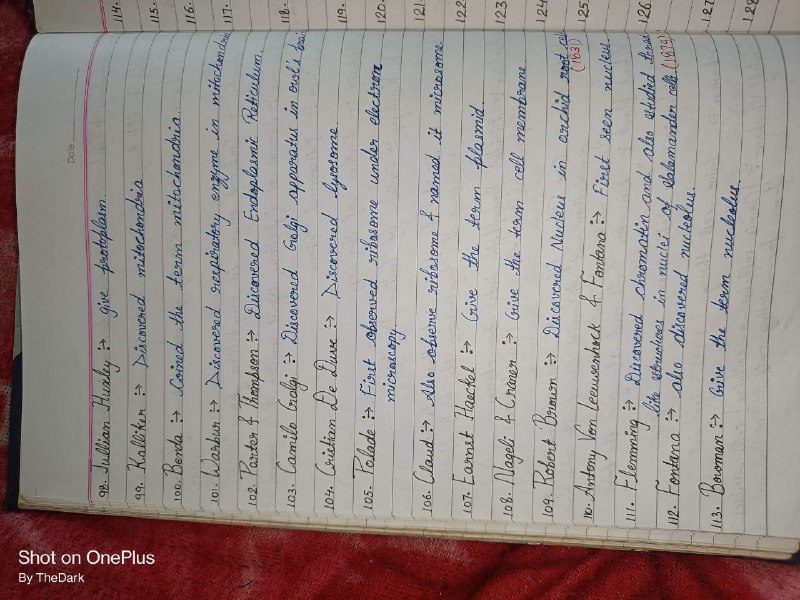 Date
98. Jullian Huxley :- give protoplasm.
99. Kalliker :- Discovered mitochondria
100. Benda :- Coined the term mitochondria.
101. Warbur :- Discovered respiratory enzyme in mitochondria
102. Porter & Thompson :- Discovered Endoplasmic Reticulum.
103. Camilo Golgi :- Discovered Golgi apparatus in owl's
104. Cristian De Duve :- Discovered lysosome.
105. Palade :- First observed ribosome under electron
microscopy
106. Claud :- Also observe ribosome & named it microsome.
107. Earnst Haeckel :- Give the term plasmid.
108. Nageli & Craner :- Give the team cell membrane
109. Robert Brown :- Discovered Nucleus in orchid root
(1831)
110. Antony Von Leeuwenhock & Fontana :- First seen nucleus.
111. Flemming :- Discovered chromatin and also studied
like structures in nuclei of Salamander cells (1879)
112. Fontana :- also discovered nucleolus.
113. Bowman :- Give the term nucleolus.
114.
115.
116.
117.
118.
119.
120.
121.
122
123
124
125.
126
127
128
Shot on OnePlus
By TheDark